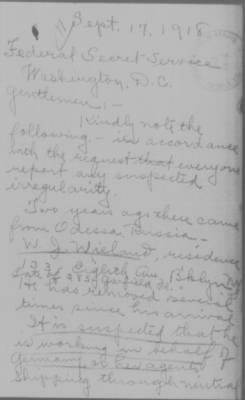 Sept. 17, 1918
Federal Secret Service
Washington, D.C.
Gentlemen; -
Kindly note the
following - in accordance
with the request that everyone
report any suspected
irregularity.
Two years ago there came
from Odessa, Russia -
W. J. Wieland, residence
Eighth Ave, Bklyn, NY
late of
He has removed several
times since his arrival
It is suspected that he
is working in behalf of
Germany or her agents
shipping through neutral